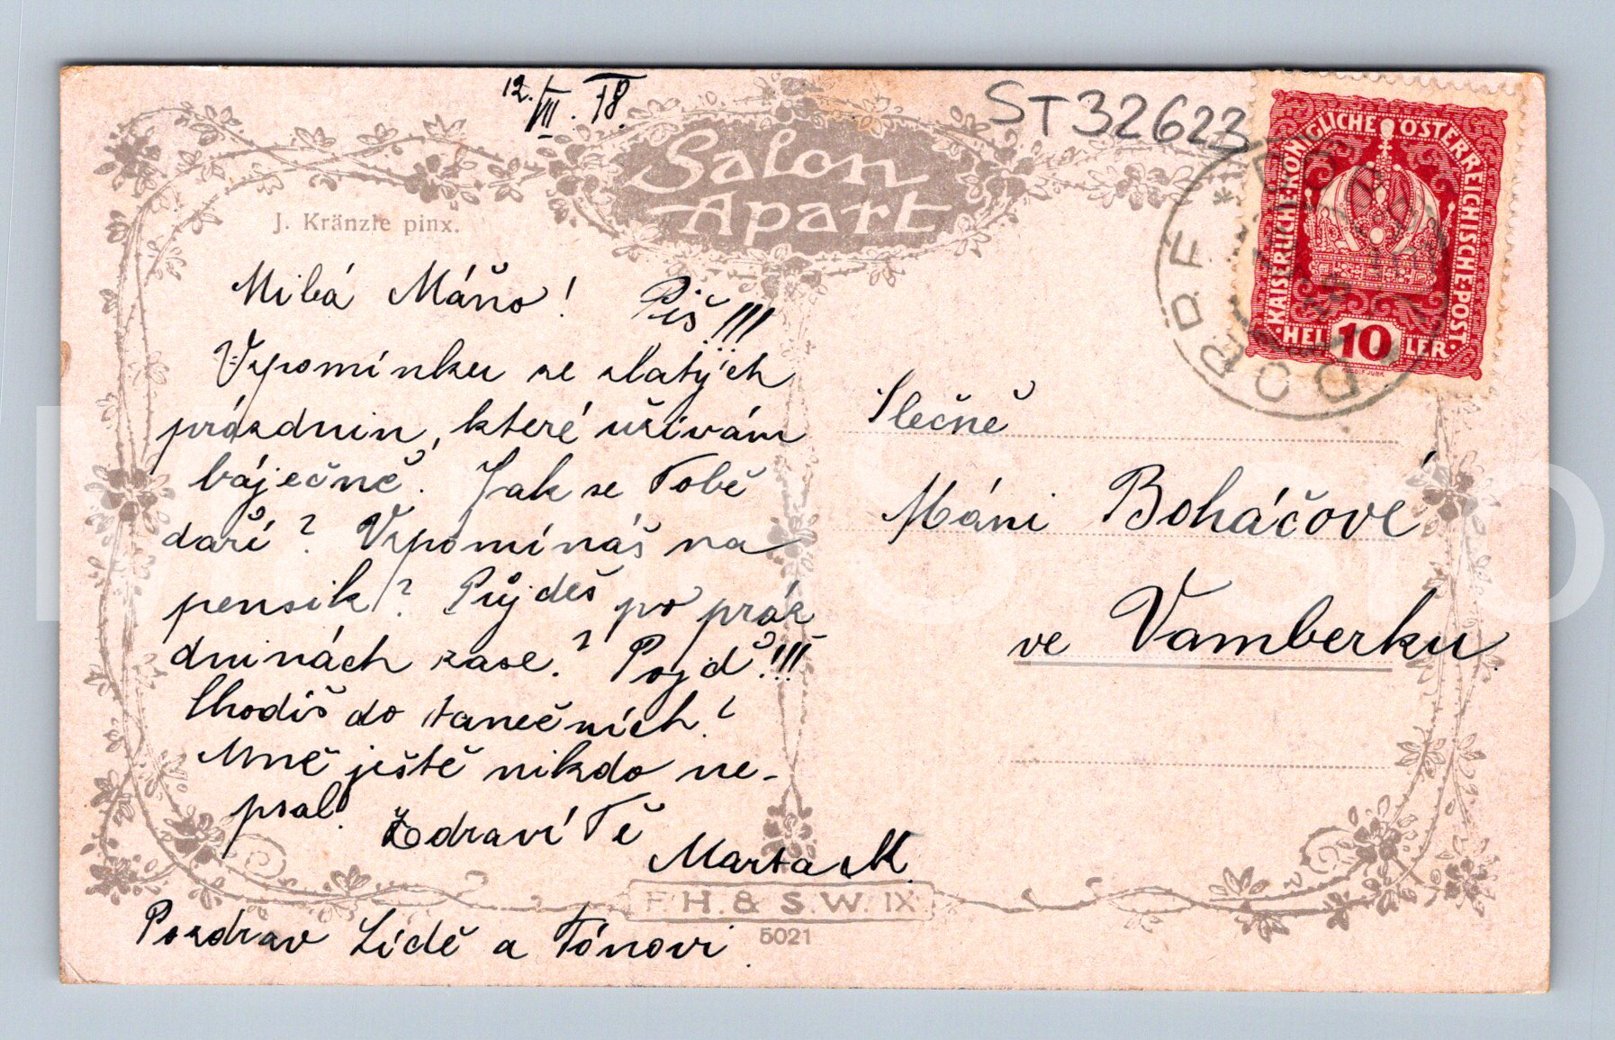 12./VII. 18.
ST32623
Salon
Apart
J. Kränzle pinx.
KAISERLICHE·KÖNIGLICHE ÖSTERREICHISCHE·POST·
·HEL 10 LER·
Milá Máňo! Piš!!!
Vzpomínku ze zlatých
prázdnin, které užívám
báječně. Jak se Tobě
daří? Vzpomínáš na
pensik? Půjdeš po práz
dninách zase? Pojď!!!
Chodíš do tanečních?
Mně ještě nikdo ne-
psal. Zdraví Tě
Marta M.
Pozdrav Lídě a Tónovi.
Slečně
Máni Boháčové
ve Vamberku.
F.H. & S.W. IX
5021